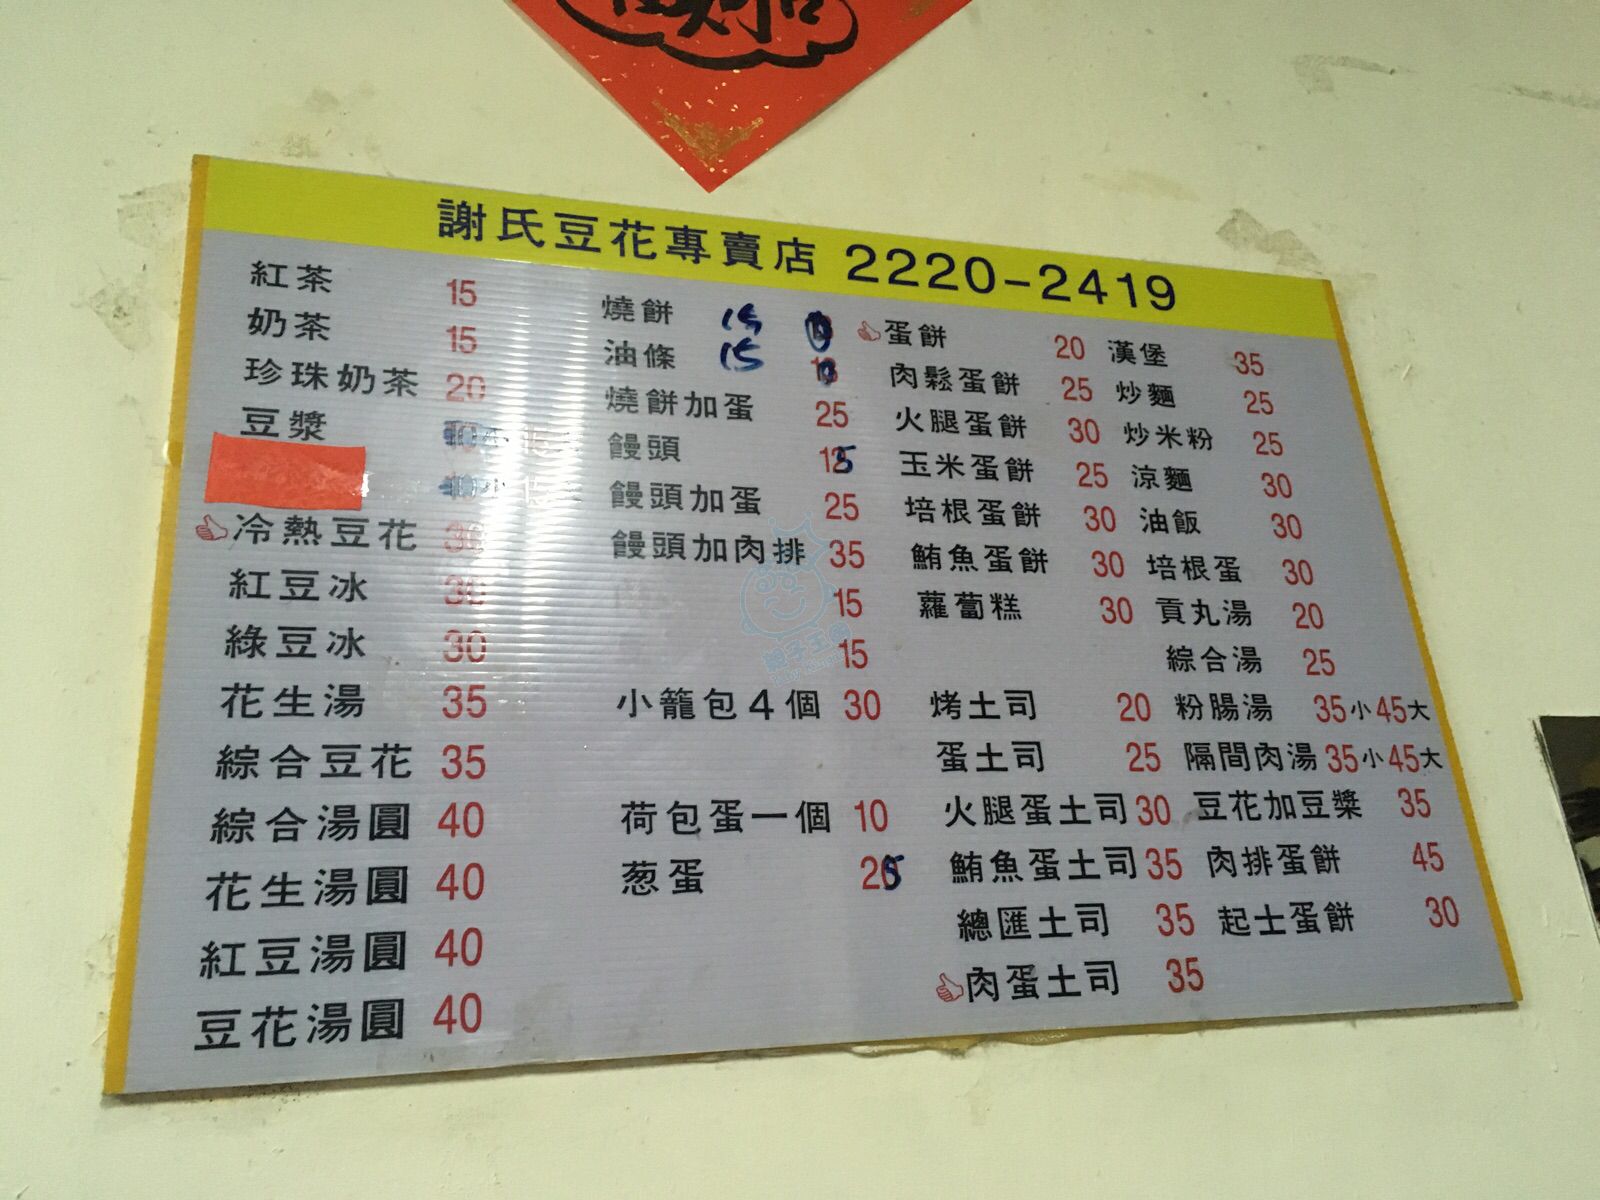 謝氏豆花專賣店 2220-2419
紅茶 15
奶茶 15
珍珠奶茶 20
豆漿
冷熱豆花 30
紅豆冰 30
綠豆冰 30
花生湯 35
綜合豆花 35
綜合湯圓 40
花生湯圓 40
紅豆湯圓 40
豆花湯圓 40
燒餅 15
油條 15
燒餅加蛋 25
饅頭 15
饅頭加蛋 25
饅頭加肉排 35
15
15
小籠包4個 30
荷包蛋一個 10
葱蛋 25
蛋餅 20
肉鬆蛋餅 25
火腿蛋餅 30
玉米蛋餅 25
培根蛋餅 30
鮪魚蛋餅 30
蘿蔔糕 30
烤土司 20
蛋土司 25
火腿蛋土司 30
鮪魚蛋土司 35
總匯土司 35
肉蛋土司 35
漢堡 35
炒麵 25
炒米粉 25
涼麵 30
油飯 30
培根蛋 30
貢丸湯 20
綜合湯 25
粉腸湯 35小45大
隔間肉湯 35小45大
豆花加豆漿 35
肉排蛋餅 45
起士蛋餅 30